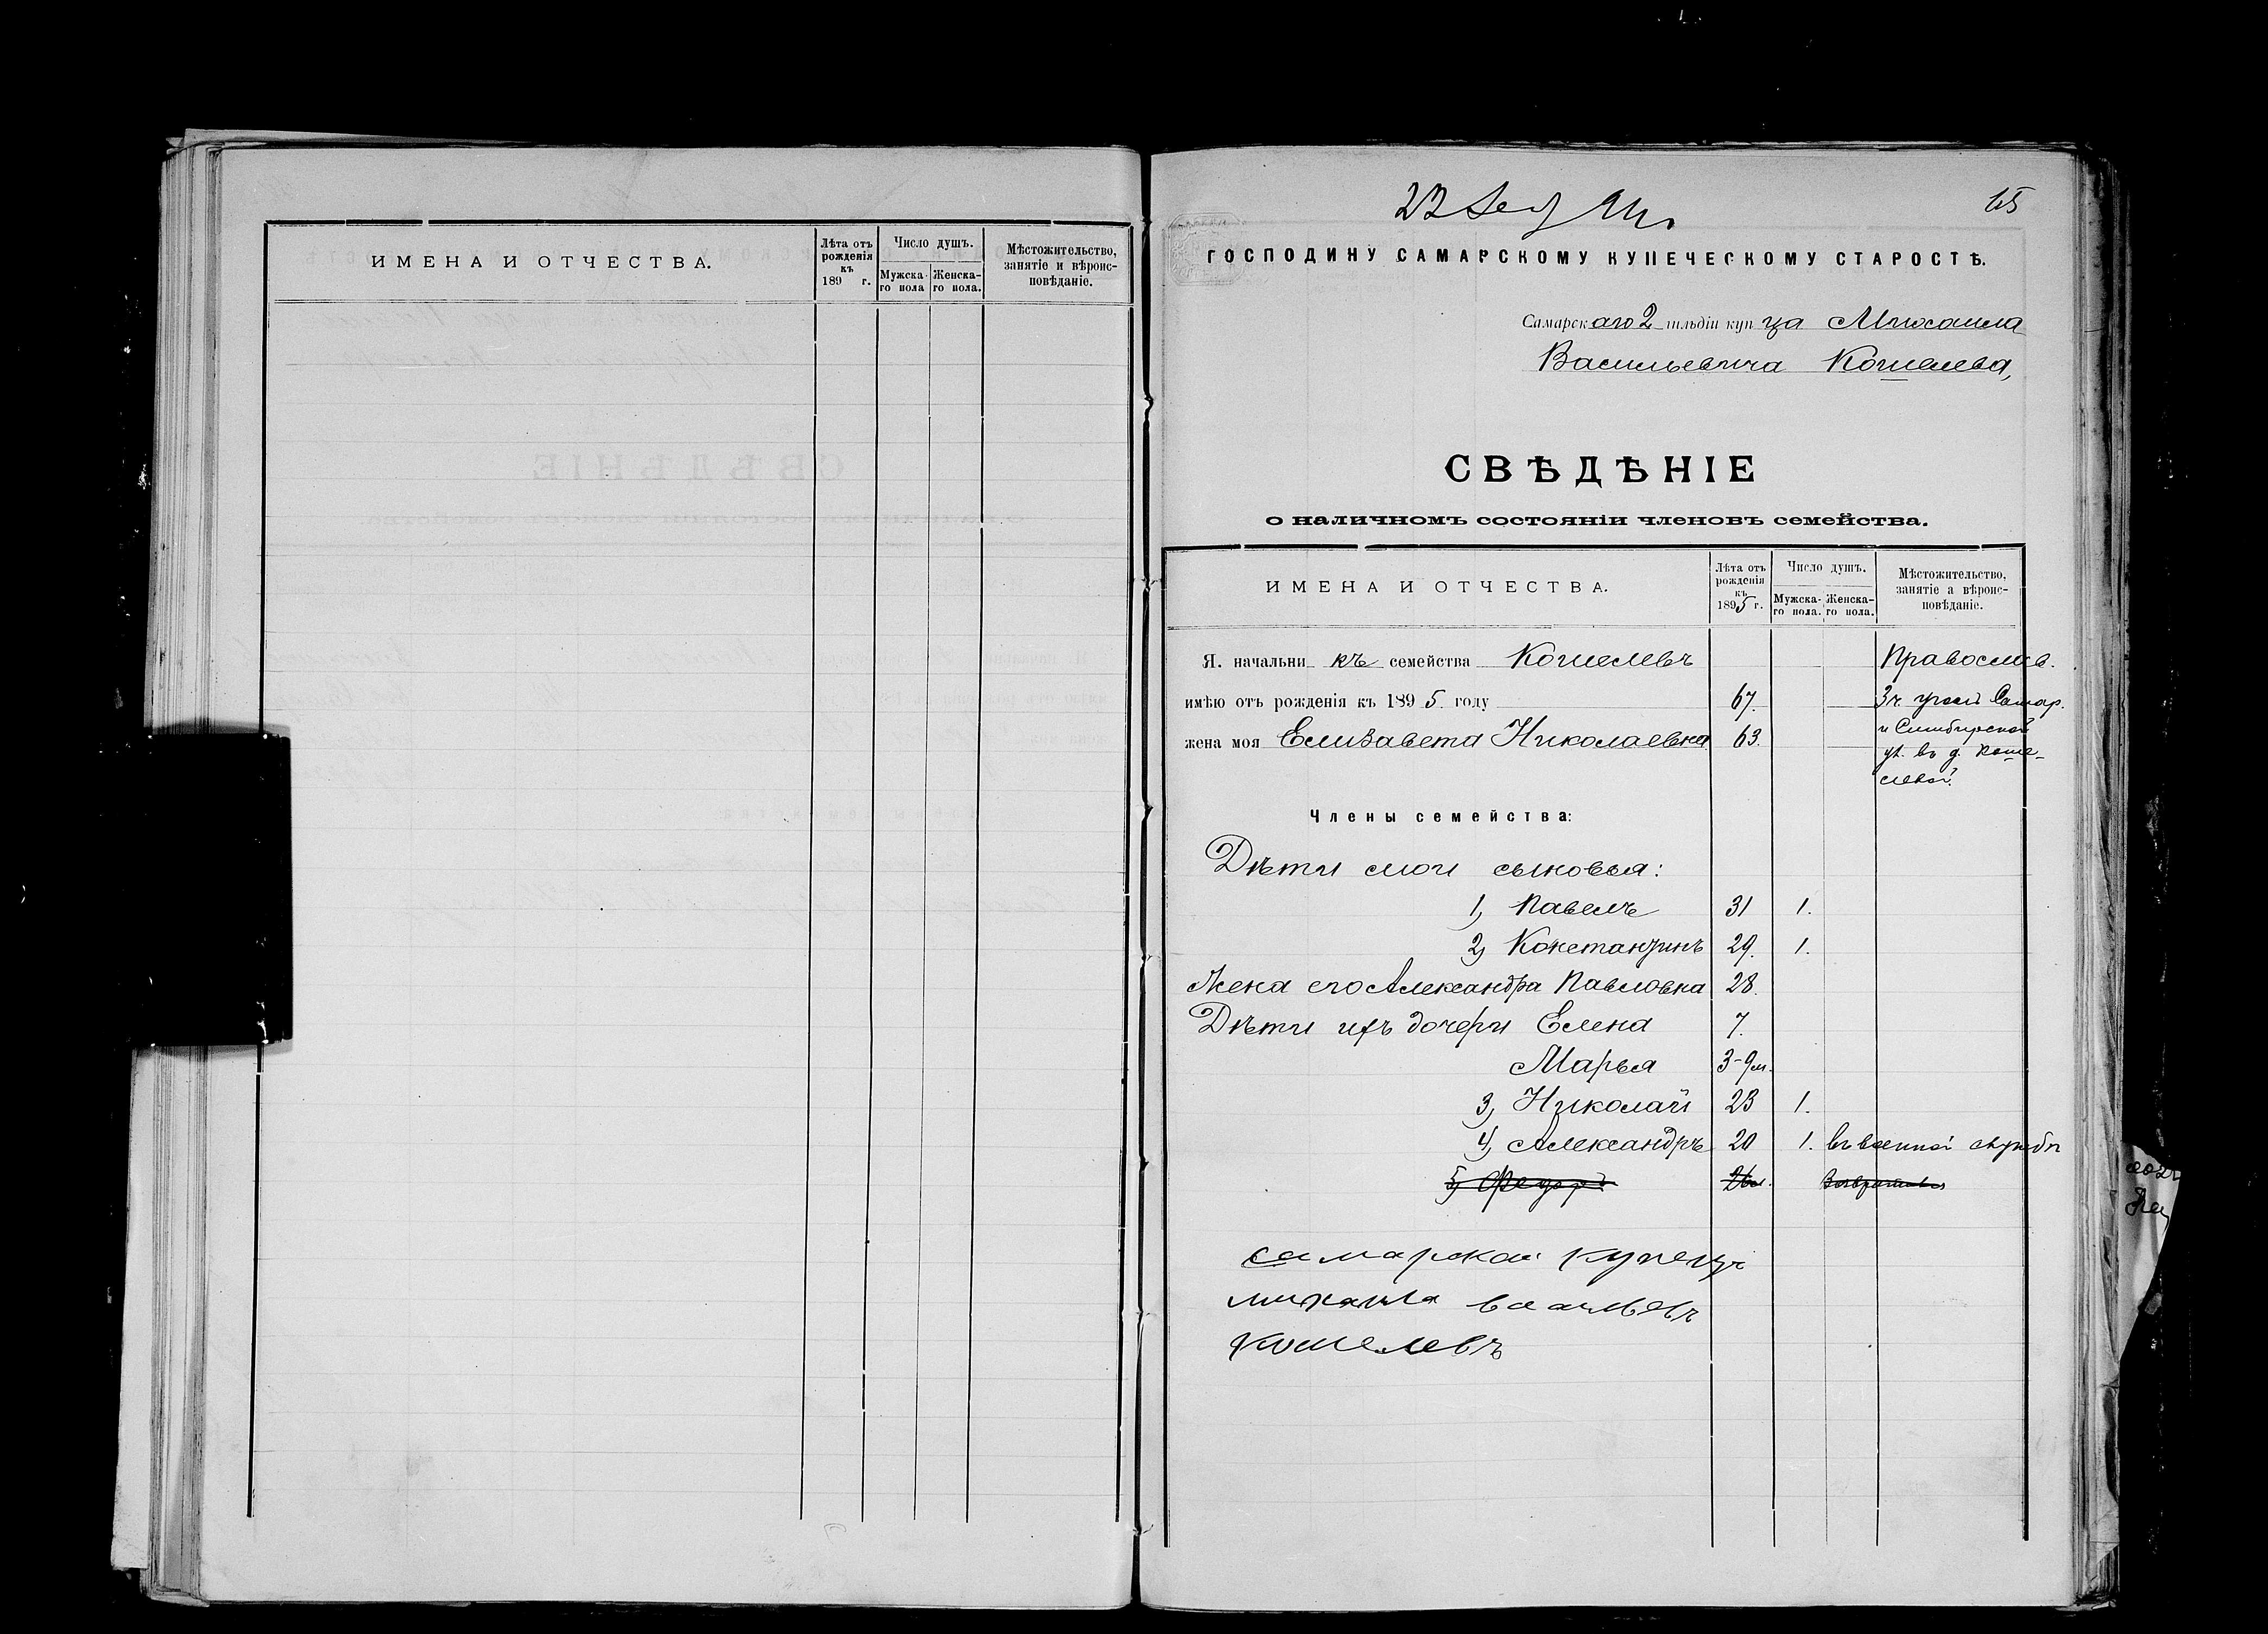 ИМЕНА И ОТЧЕСТВА.
Лѣта отъ рожденія къ 189 г.
Число душъ.
Мужска-го пола
Женска-го пола.
Мѣстожительство, занятіе и вѣроис-повѣданіе.
22 94 г.
65
ГОСПОДИНУ САМАРСКОМУ КУПЕЧЕСКОМУ СТАРОСТѢ.
Самарскаго 2 гильдіи купца Михаила
Васильевича Кошелева,
СВѢДѢНІЕ
о наличномъ состояніи членовъ семейства.
ИМЕНА И ОТЧЕСТВА.
Лѣта отъ рожденія къ 1895 г.
Число душъ.
Мужска-го пола.
Женска-го пола.
Мѣстожительство, занятіе а вѣроис-повѣданіе.
Я. начальникъ семейства Кошелевъ Православ.
имѣю отъ рожденія къ 1895 году 67. 3 ч. уголъ Самар.
жена моя Елизавета Николаевна 63. и Симбирской
ул. въ д. Коше-
левой.
Члены семейства:
Дѣти мои сыновья:
1, Павелъ 31 1.
2, Константинъ 29. 1.
Жена его Александра Павловна 28.
Дѣти ихъ дочери Елена 7.
Марья 3-9м.
3, Николай 23 1.
4, Александръ 20 1. въ военной службѣ
5, Федоръ
самарской купецъ
михаила васильевъ
кошелевъ